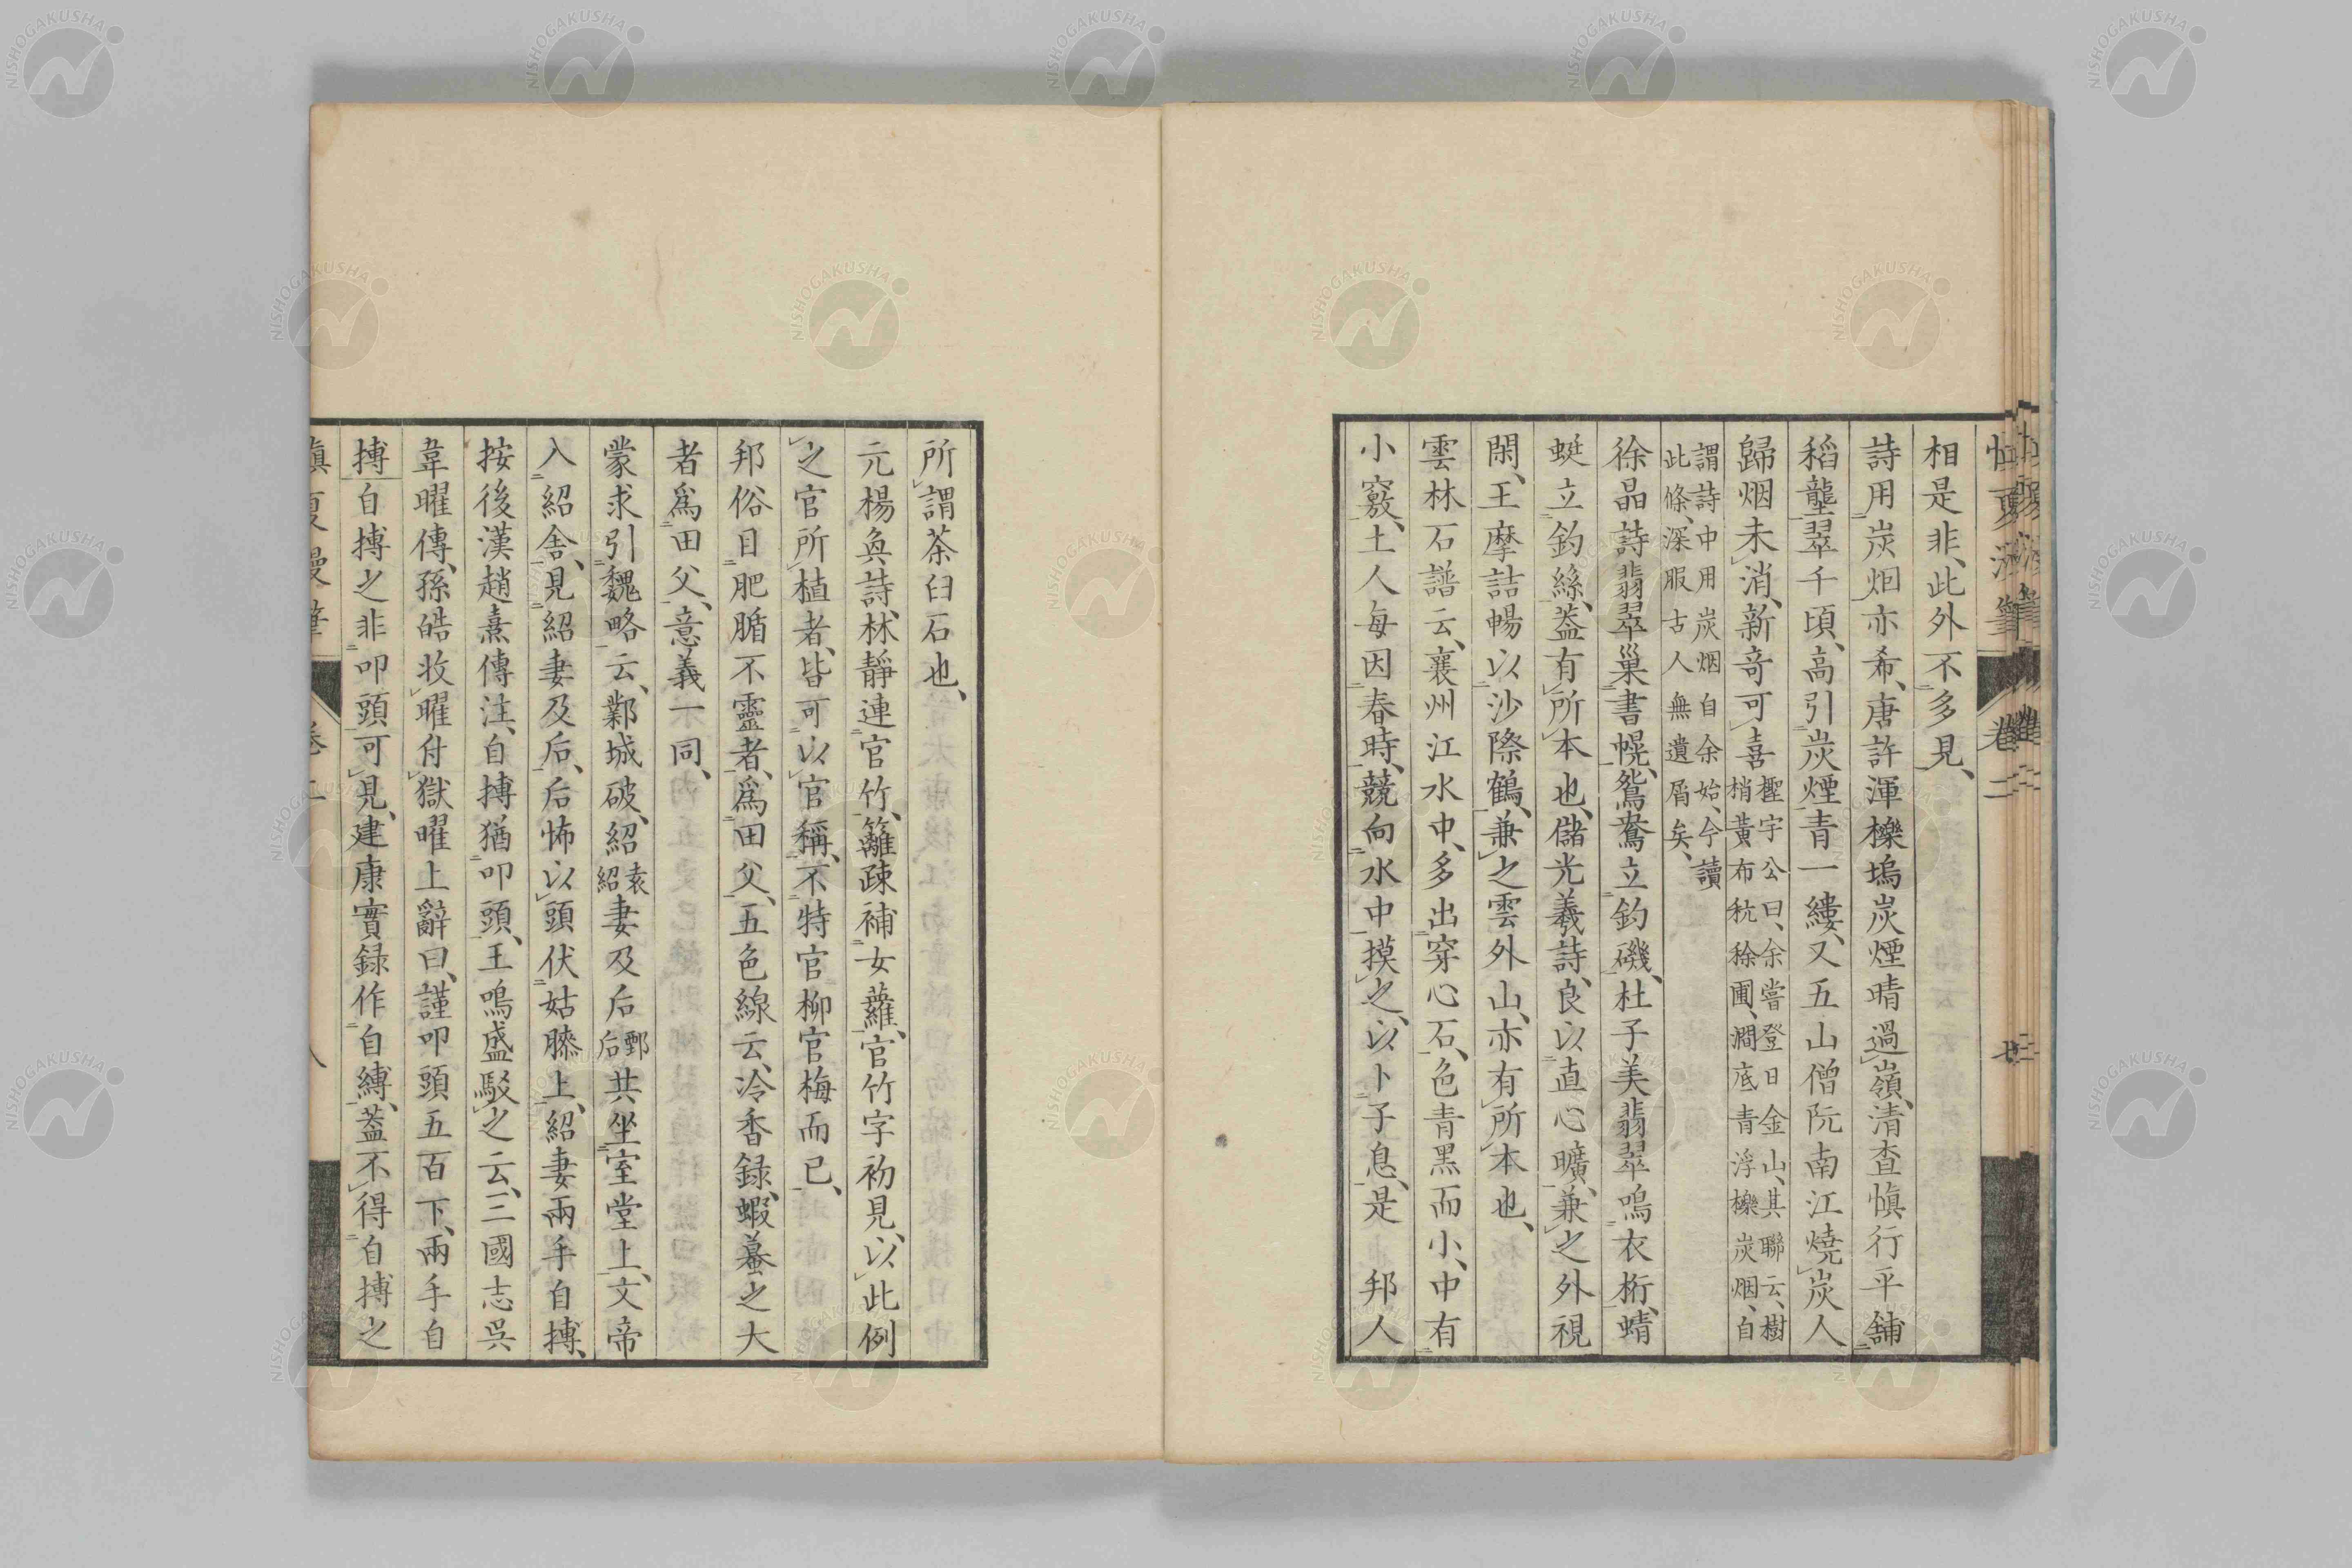 相是非、此外不多見、
詩用炭烟亦希、唐許渾櫟塢炭煙晴過嶺、清查愼行平鋪
稻壟翠千頃、高引炭煙青一縷、又五山僧阮南江燒炭人
歸烟未消、新奇可喜 檉宇公曰、余嘗登日金山、其聯云、樹梢黃布秔稌圃、澗底青浮櫟炭烟、自
謂詩中用炭烟自余始、今讀此條、深服古人無遺屑矣、
徐晶詩翡翠巢書幌、鴛鴦立釣磯、杜子美翡翠鳴衣桁、蜻
蜓立釣絲、葢有所本也、儲光羲詩、良以直心曠、兼之外視
閑、王摩詰暢以沙際鶴、兼之雲外山、亦有所本也、
雲林石譜云、襄州江水中、多出穿心石、色青黑而小、中有
小竅、土人每因春時、競向水中摸之、以卜子息、是 邦人
所謂茶臼石也、
元楊奐詩、林靜連官竹、籬疎補女蘿、官竹字初見、以此例
之官所植者、皆可以官稱、不特官柳官梅而已、
邦俗目肥腯不靈者、爲田父、五色線云、冷香録、蝦蟇之大
者爲田父、意義一同、
蒙求引魏略云、鄴城破、紹 袁紹 妻及后 鄄后 共坐室堂上、文帝
入紹舎、見紹妻及后、后怖以頭伏姑膝上、紹妻兩手自搏、
按後漢趙熹傳注、自搏猶叩頭、王鳴盛駁之云、三國志吳
韋曜傳、孫皓收曜付獄、曜上辭曰、謹叩頭五百下、兩手自
搏、自搏之非叩頭可見、建康實録作自縛、葢不得自搏之